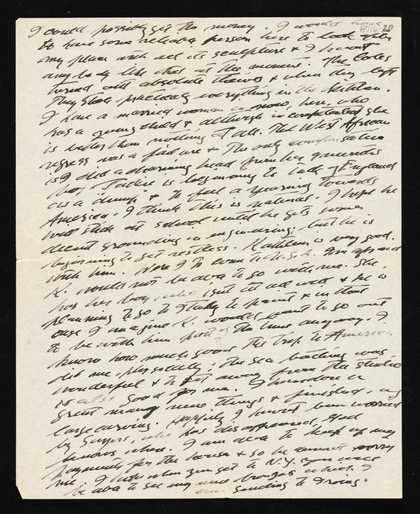 I could possibly get the money. I would have
to have some reliable person here to look after
my place with all its sculpture & I haven't
any body like that at the moment. The Coles
turned out absolute thieves & when they left
They stole practically everything in the kitchen.
I have a married woman now, here, who
has a young child & although is incompetent she
is better than nothing at all. The West African
negress was a failure & the only consolation
is I did a charming head from her
boy, Jackie is beginning to talk of England
as a dump & to have a yearning towards
America. I think this is natural. I hope he
will stick at school until he gets some
decent grounding in engineering but he is
beginning to get restless. Kathleen is very good
with him. Now I to come to U.S.A. I'm afraid
K. would not be able to go with me. She
has her boy who isn't at all well & he is
planning to go to Italy to paint & in that
case I imagine K. would want to go out
to be with him part of the time anyway. I
know how much good the trip to America
did me, physically; the sea bathing was
wonderful & to get away from the studio
is also good for me. I worked on
great many new things & finished my
large carving. Happily I haven't been worried
by Gurpos, who has disappeared, God
knows where. I am able to keep up my
payments for the house & so he cannot worry
me. I hope when you get to N.Y. you will
be able to see my new bronzes which I
am sending to Irving.